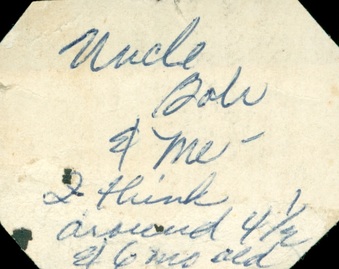 Uncle
Bob
& Me -
I think
around 4 1/2
& 6 mo old